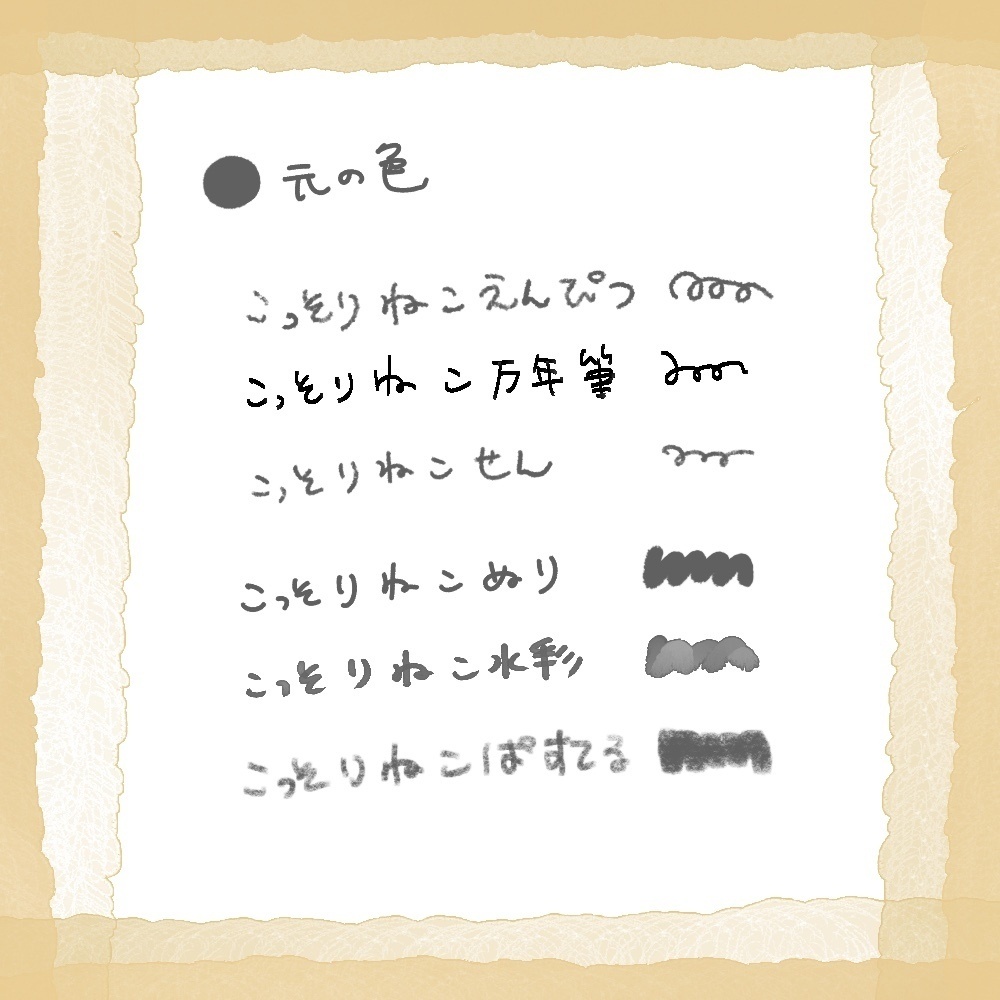 元の色
こっそりねこえんぴつ
こっそりねこ万年筆
こっそりねこせん
こっそりねこぬり
こっそりねこ水彩
こっそりねこぱすてる